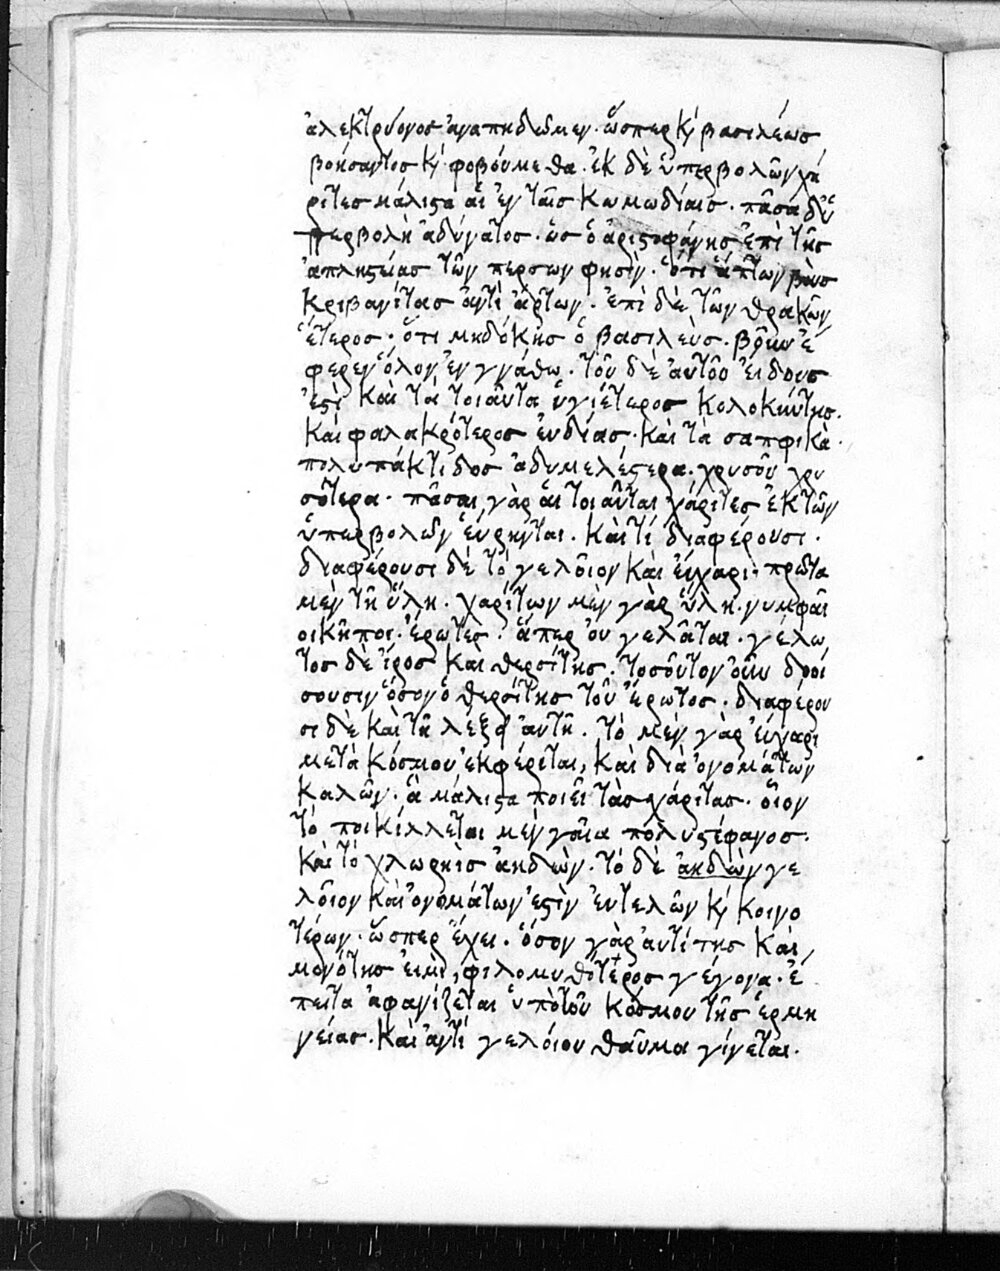 ἀλεκτρύονος ἀναπηδῶμεν· ὥσπερ κ(αὶ) βασιλέως
βοήσαντος κ(αὶ) φοβούμεθα· ἐκ δὲ ὑπερβολῶν χά
ριτες μάλιστα αἱ ἐν ταῖς κωμωδίαις· πᾶσα δὲ ὑ
περβολὴ ἀδύνατος· ὡς ὁ ἀριστοφάνης ἐπὶ τῆς
ἀπληστείας τῶν περσων φησὶν· ὅτι ὤπτων βοῦς
κριβανίτας ἀντὶ ἄρτων· ἐπὶ δὲ τῶν θρακῶν
ἕτερος· ὅτι μηδόκης ὁ βασιλεὺς· βοῦν ἔ
φερεν ὅλον ἐν γνάθω· τοῦ δὲ αὐτοῦ εἴδους
ἐστὶ καὶ τὰ τοιαῦτα ὑγιέτερος κολοκύντης·
καὶ φαλακρότερος εὐδίας· καὶ τὰ σαπφικὰ·
πολυπάκτιδος ἀδυμελέστερα· χρυσοῦ χρυ
σότερα· πᾶσαι γὰρ αἱ τοιαῦται χάριτες ἐκ τῶν
ὑπερβολῶν εὕρηνται· καὶ τί διαφέρουσι·
διαφέρουσι δὲ τὸ γελοῖον καὶ εὔχαρι· πρῶτα
μὲν τῆ ὕλη· χαρίτων μὲν γὰρ ὕλη· νυμφαῖ
οι κῆποι· ἔρωτες· ἅπερ οὐ γελᾶται· γέλω
τος δὲ ἶρος καὶ θερσίτης· τοσοῦτον οὖν διοί
σουσιν ὅσον ὁ θερσίτης τοῦ ἔρωτος· διαφέρου
σι δὲ καὶ τῆ λέξει αὐτῆ· τὸ μὲν γὰρ εὔχαρι
μετὰ κόσμου ἐκφέρεται, καὶ δια ὀνομάτων
καλῶν· ἃ μάλιστα ποιεῖ τὰς χάριτας· οἷον
τὸ ποικίλλεται μὲν γαῖα πολυστέφανος·
καὶ τὸ χλωρηὶς ἀηδὼν· τὸ δὲ ἀηδὼν γε
λοῖον καὶ ὀνομάτων ἐστὶν εὐτελῶν κ(αὶ) κοινο
τέρων· ὥσπερ ἔχει· ὅσον γὰρ αὐτίτης καὶ
μονώτης εἰμὶ, φιλομυθότερος γέγονα· ἔ
πειτα ἀφανίζεται ὑπὸ τοῦ κόσμου τῆς ἑρμη
νείας· καὶ ἀντὶ γελοίου θαῦμα γίνεται·